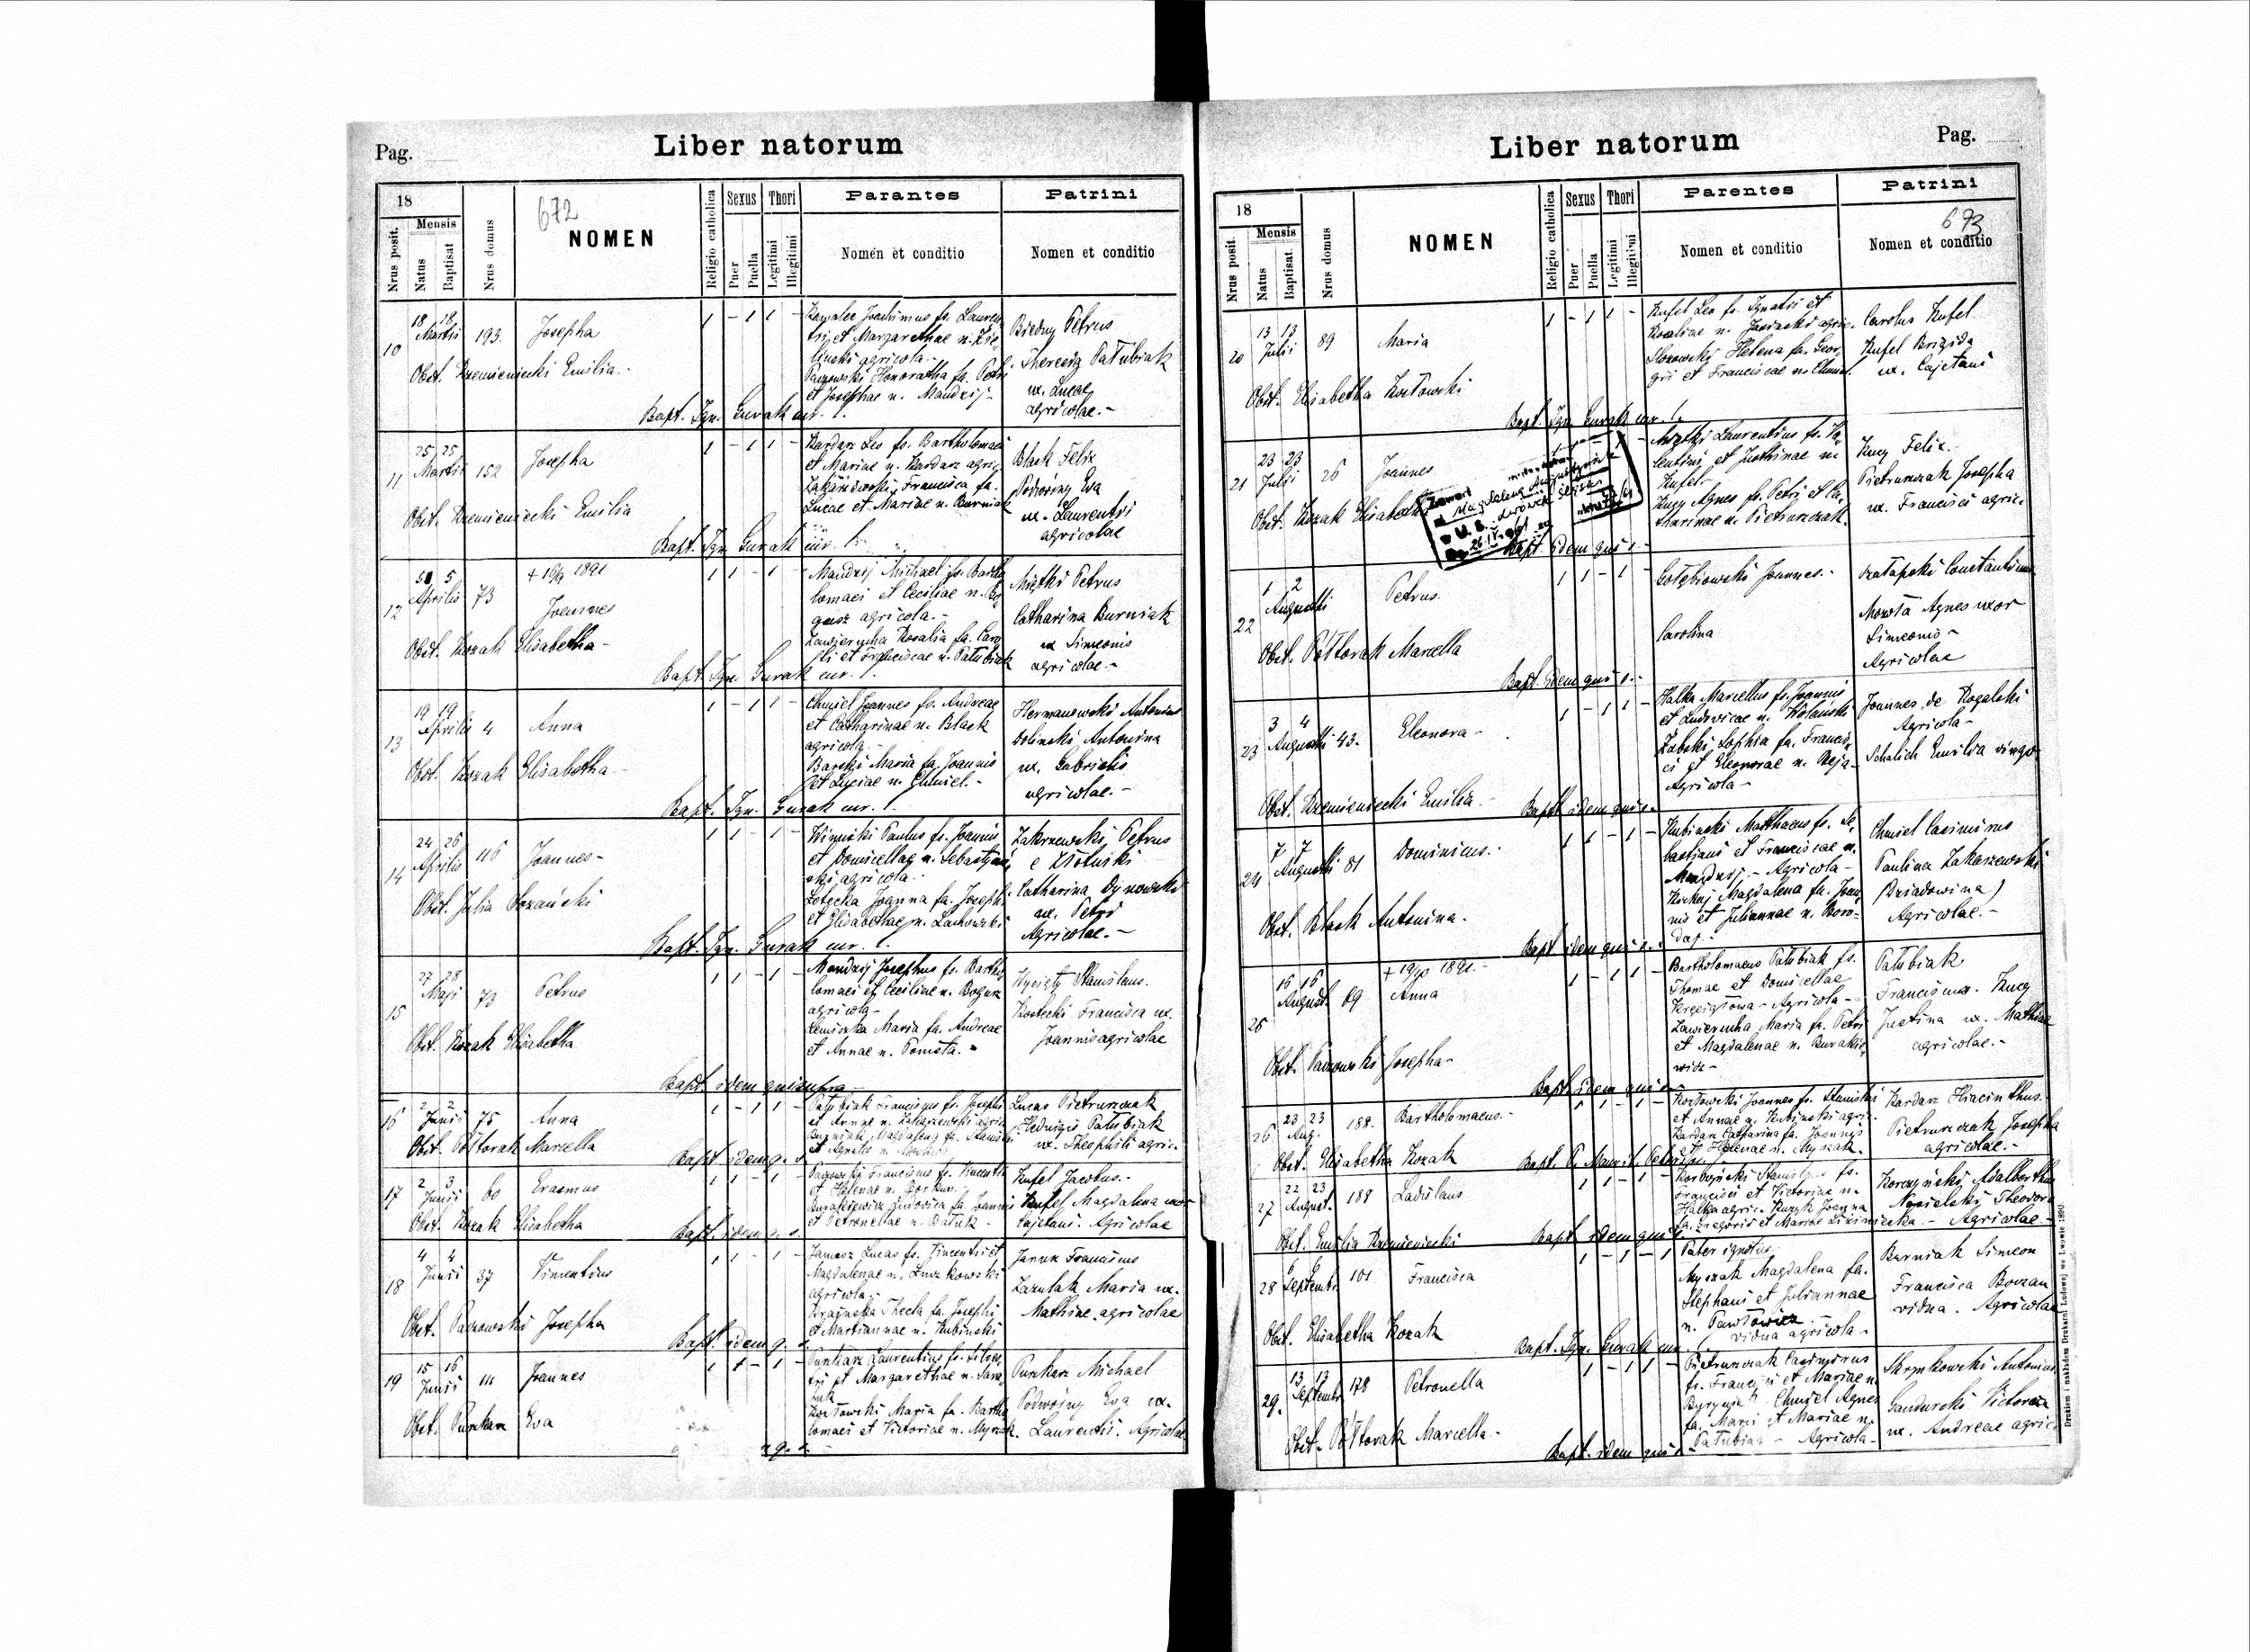 Pag.
Liber natorum
18
672
NOMEN
Nrus posit.
Mensis
Natus
Baptisat
Nrus domus
Religio catholica
Sexus
Puer
Puella
Thori
Legitimi
Illegitimi
Parantes
Nomen et conditio
Patrini
Nomen et conditio
10
18 18
Martii
193.
Josepha
Obst. Krzemieniecki Emilia.
1 - 1 1 -
Joachimus fs. Lauren
tii et Margarethae n.
agricola.-
Paczowski Honoratha fa. Petri
et Josephae n. Mandzij-
Biedny Petrus
Theresia Patubiak
ux. Lucae
agricolae.-
Bapt. Ign. Gurak cur.
11
25 25
Martii
152
Josepha
Obst. Krzemieniecki Emilia
1 - 1 1 -
Kardasz Leo fs. Bartholomaei
et Mariae n. Kardasz agric.
Zakrzewski Francisca fa.
Lucae et Mariae n. Burniak
Black Felix
Podwojny Eva
ux. Laurentii
agricolae
Bapt. Ign. Gurak cur.
12
5 5
Aprilis
73
+ 19/9 1891
Joannes
Obst. Kozak Elisabetha-
1 1 - 1 -
Mandzij Michael fs. Barth
lomaei et Ceciliae n. Bo
gusz agricola.-
Zawierucha Rosalia fa. Caro
li et Franciscae n. Patubiak
Miętki Petrus
Catharina Burniak
ux Simeonis
agricolae-
Bapt. Ign. Gurak cur.
13
19 19
Aprilis
4
Anna
Obst. Kozak Elisabetha-
1 - 1 1 -
Chmiel Joannes fs. Andreae
et Catharinae n. Black
agricola.-
Barski Maria fa. Joannis
et Luciae n. Chmiel.-
Hermanowski Antonius
Dolinski Antonina
ux. Gabrielis
agricolae.-
Bapt. Ign. Gurak cur.
14
24 26
Aprilis
116
Joannes-
Obst. Julia
1 1 - 1 -
Paulus fs. Joannis
et Domicellae n. Sebastyań
ski agricola.-
Joanna fa. Josephi
et Elisabethae n. Lachowski
Zakrzewski Petrus
e
Catharina Dynowski
ux. Petri
Agricolae.-
Bapt. Ign. Gurak cur.
15
27 28
Maji
73
Petrus
Obst. Kozak Elisabetha
1 1 - 1 -
Mandzij Josephus fs. Bartho
lomaei et Ceciliae n. Bogusz
agricola-
Maria fa. Andreae
et Annae n.
Wycięty Stanislaus.
Kostecki Francisca ux.
Joannis agricolae
Bapt. idem qui supra-
16
2 2
Junii
75
Anna
Obst. Półtorak Marcella
1 - 1 1 -
Patubiak Franciscus fs. Josephi
et Annae n. Zakrzewski agric.
Burniak Magdalena fa. Stanislai
et Agnetis n.
Lucas Pietruszczak
Hedwigis Patubiak
ux. Theophili agric.
Bapt. idem q. s.
17
2 3
Junii
60
Erasmus
Obst. Kozak Elisabetha
1 1 - 1 -
Paczowski Franciscus fs. Vincentii
et Helenae n.
Burakiewicz Ludovica fa. Joannis
et Petronellae n.
Kufel Jacobus.-
Kufel Magdalena uxor
Cajetani. Agricolae
Bapt. idem q. s.
18
4 4
Junii
37
Vincentius
Obst. Paczowski Josepha
1 1 - 1 -
Lucas fs. Vincentii et
Magdalenae n.
agricola.-
Thecla fa. Josephi
et Mariannae n. Kubinski
Franciscus
Maria ux.
Mathiae agricolae
Bapt. idem q. s.
19
15 16
Junii
111
Joannes
Obst. Punkarz Eva
1 1 - 1 -
Punkarz Laurentius fs. Silves
tri et Margarethae n.
Kozłowski Maria fa. Bartho
lomaei et Victoriae n. Myszak.
Punkarz Michael
Podwojny Eva ux.
Laurentii. Agricolae
q. s.
Liber natorum
Pag.
18
673
NOMEN
Nrus posit.
Mensis
Natus
Baptisat.
Nrus domus
Religio catholica
Sexus
Puer
Puella
Thori
Legitimi
Illegitimi
Parentes
Nomen et conditio
Patrini
Nomen et conditio
20
13 13
Julii
89
Maria
Obst. Elisabetha Kozłowski
1 - 1 1 -
Kufel Leo fs. Ignatii et
Rosaliae n. agric.
Helena fa. Geor
gii et Franciscae n. Chmiel.
Carolus Kufel
Kufel Brigida
ux. Cajetani
Bapt. Ign. Gurak cur.
21
23 23
Julii
26
Joannes
Obst. Kozak Elisabetha
Zawarł
Magdalena
U.S.C.
Miętki Laurentius fs. Va
lentini et Justinae n.
Kufel-
Kucy Agnes fa. Petri et Ca
tharinae n. Pietruszczak.
Kucy Felix-
Pietruszczak Josepha
ux. Francisci agric.
Bapt. idem qui s.-
22
1 2
Augusti
Petrus
Obst. Półtorak Marcella
1 1 - 1 -
Gołębiowski Joannes.-
Carolina
Constantinus
Agnes uxor
Simeonis-
Agricolae
Bapt. idem qui s.-
23
3 4
Augusti
43.
Eleonora-
Obst. Krzemieniecki Emilia.-
1 - 1 1 -
Halka Marcellus fs. Joannis
et Ludovicae n. Wolański
Żabski Sophia fa. Francis
ci et Eleonorae n. Reja-
Agricola-
Joannes de Rogalski
Agricola-
Schalich Emilia virgo
Bapt. idem qui s.
24
7 7
Augusti
81
Dominicus.-
Obst. Black Antonina.
1 1 - 1 -
Kubinski Matthaeus fs. Se
bastiani et Franciscae n.
Mandzij.- Agricola-
Magdalena fa. Joan
nis et Juliannae n. Boro=
daj.-
Chmiel Casimirus
Paulina Zakrzewski
(Dziadowina)
Agricolae.-
Bapt. idem qui s.
25
16 16
August.
69
+ 19/10 1891.-
Anna
Obst. Paczowski Josepha-
1 - 1 1 -
Bartholomaeus Patubiak fs.
Thomae et Domicellae
Agricola-
Zawierucha Maria fa. Petri
et Magdalenae n. Burakie
wicz-
Patubiak
Franciscus. Kucy
Justina ux. Mathiae
agricolae.-
Bapt. idem qui s.
26
23 23
Aug.
188.
Bartholomaeus.-
Obst. Elisabetha Kozak
1 1 - 1 -
Kozłowski Joannes fs. Stanislai
et Annae n. Kubinski agri-
Kardasz Catharina fa. Joannis
et Helenae n. Myszak.
Kardasz Hiacinthus.
Pietruszczak Josepha
agricolae.-
Bapt. P.
27
22 23
August.
188
Ladislaus
Obst. Emilia Krzemieniecki
1 1 - 1 -
Korczyński Stanislaus fs.
Francisci et Victoriae n.
Halka agric. Joanna
fa. Gregorii et Mariae
Korczyński Adalbertus
Theodora
- Agricolae-
Bapt. idem qui s.
28
6
Septembr.
101
Francisca
Obst. Elisabetha Kozak
1 - 1 - 1
Pater ignotus.
Myszak Magdalena fa.
Stephani et Juliannae
n. Pawłowicz
vidua agricola-
Burniak Simeon
Francisca Boczan
vidua. Agricolae
Bapt. Ign. Gurak cur.
29.
13 13
Septembr.
178
Petronella
Obst. Półtorak Marcella-
1 - 1 1 -
Pietruszczak Casimirus
fs. Francisci et Mariae n.
Chmiel Agnes
fa. Marci et Mariae n.
Patubiak- Agricola-
Skrzykowski Antonius
Gandurski Victoria
ux. Andreae agric.
Bapt. idem qui s.
Drukiem i nakładem Drukarni Ludowej we Lwowie 1890.